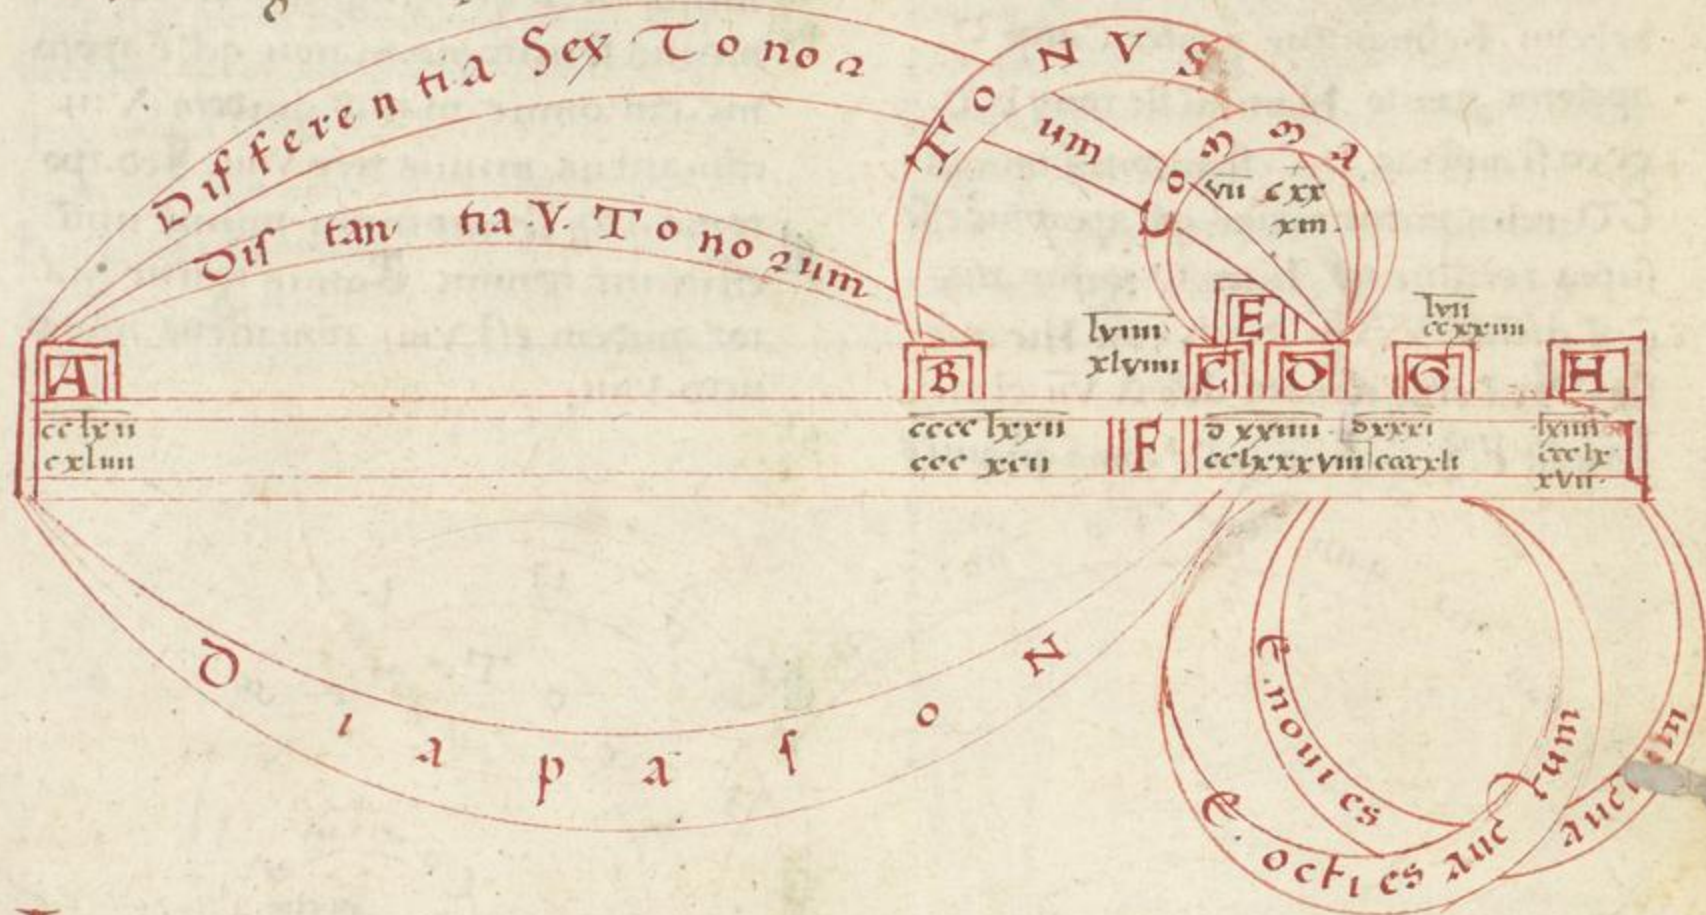 Differentia Sex Tonoꝝ
um
Distantia .V. Tonoꝝum
TONVS
Comma
vii cxx
xiii.
A
B
lviiii
xlviiii
C
E
D
lvii
ccxxiiii
G
H
cclxii
cxliiii
cccclxxii
cccxcii
F
dxxiiii
cclxxxviii
dxxxi
I
DiapasoN
E. novies auctum
E. octies auctum